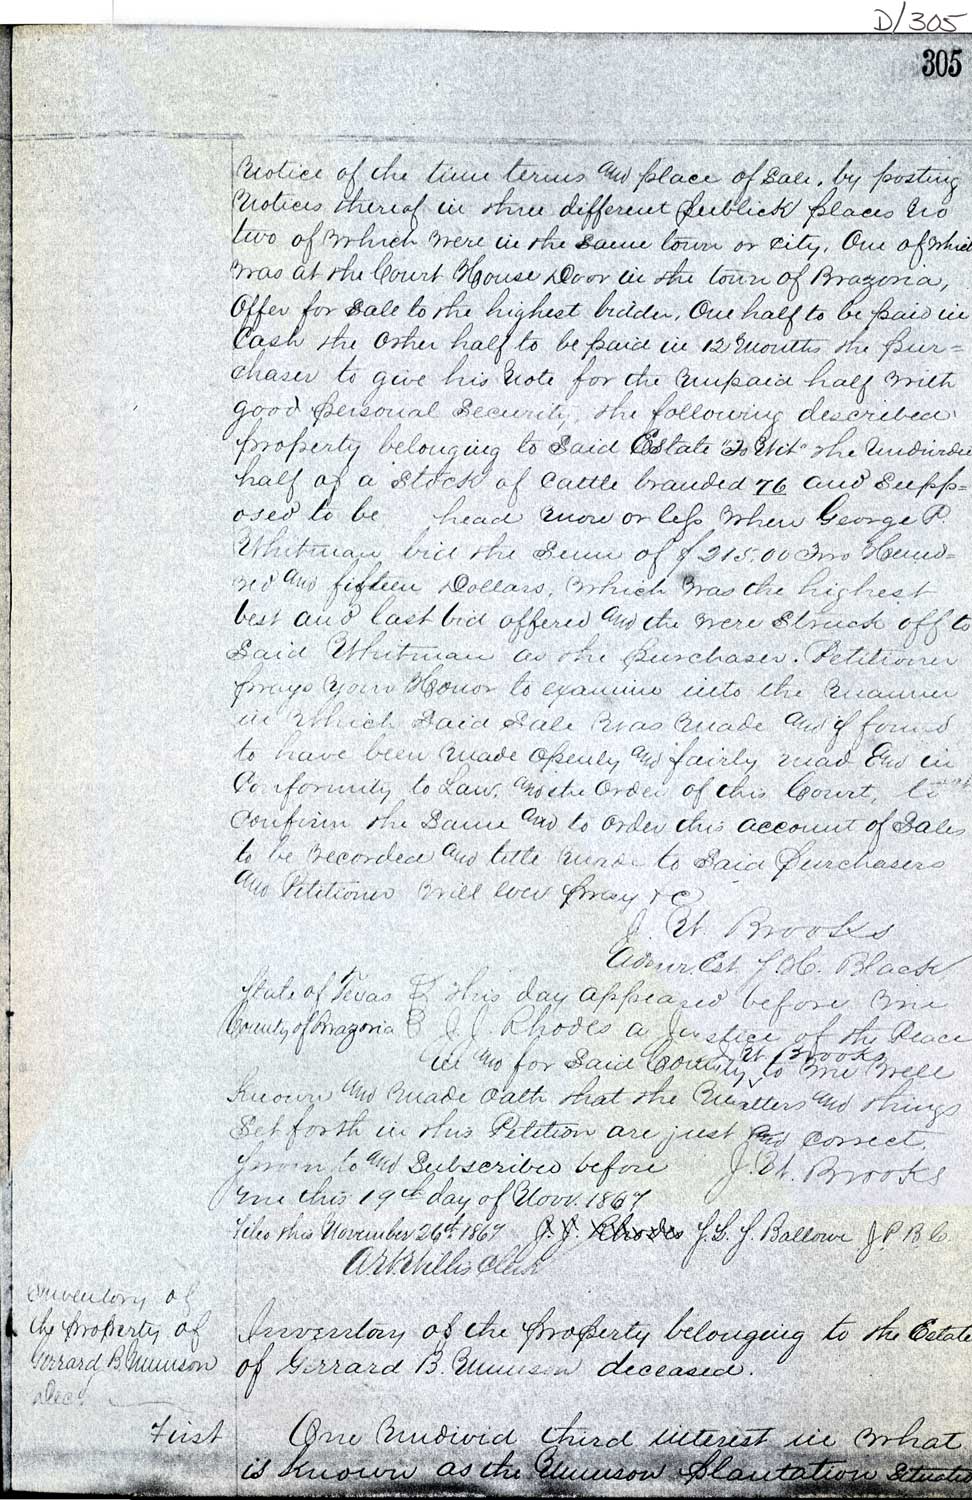 D/305
305
Notice of the time terms and place of Sale, by posting
Notices thereof in three different Publick places No
two of which were in the same town or city, One of which
was at the Court House Door in the town of Brazoria,
Offer for Sale to the highest bidder, One half to be paid in
Cash the other half to be paid in 12 Months the pur=
chaser to give his Note for the unpaid half with
good personal Security, the following described
property belonging to Said Estate "To Wit" the Undivided
half of a Stock of Cattle branded 76 and Supp=
osed to be head more or less, when George P.
Whitman bid the Sum of $215.00 Two Hund=
red and fifteen Dollars, which was the highest
best and last bid offered and the were Struck off to
Said Whitman as the purchaser. Petitioner
prays your Honor to examine into the manner
in which Said Sale was made and if found
to have been made openly and fairly mad and in
Conformity to Law, and the Order of this Court, to
Confirm the Same and to order this account of Sales
to be recorded and title made to Said purchasers
and Petitioner will ever pray &c
J. W. Brooks
Admr. Est. J. H. C. Black
State of Texas } this day appeared before me
County of Brazoria } J. J. Rhodes a Justice of the Peace
in and for Said County J. W. Brooks to me well
Known and made oath that the matters and things
Set forth in this Petition are just and correct
Sworn to and Subscribed before J. W. Brooks
me this 19th day of Novr. 1867
Filed this November 26th 1867 J. J. Rhodes J. G. J. Ballowe J P B C.
Clerk
Inventory of
the property of
Gerrard B. Munson
Decd
Inventory of the property belonging to the Estate
of Gerrard B. Munson deceased.
First One Undivid third interest in what
is Known as the Munson Plantation Situated